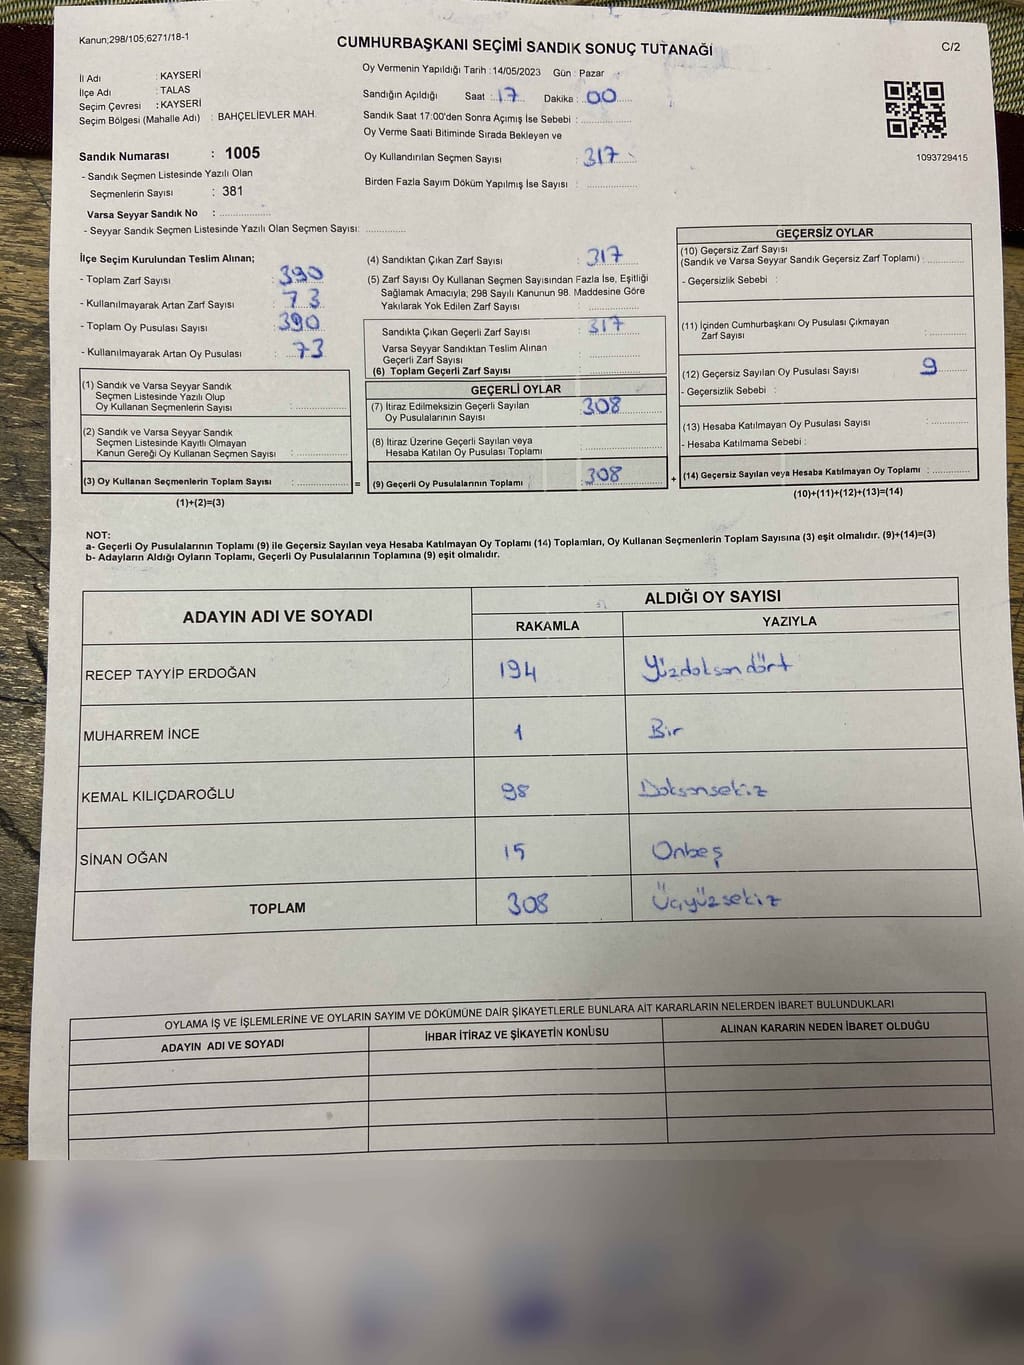 Kanun;298/105;6271/18-1
CUMHURBAŞKANI SEÇİMİ SANDIK SONUÇ TUTANAĞI
C/2
İl Adı : KAYSERİ
İlçe Adı : TALAS
Seçim Çevresi : KAYSERİ
Seçim Bölgesi (Mahalle Adı) : BAHÇELİEVLER MAH.
Sandık Numarası : 1005
- Sandık Seçmen Listesinde Yazılı Olan
Seçmenlerin Sayısı : 381
Varsa Seyyar Sandık No : ....................
- Seyyar Sandık Seçmen Listesinde Yazılı Olan Seçmen Sayısı: ..............
Oy Vermenin Yapıldığı Tarih : 14/05/2023 Gün : Pazar
Sandığın Açıldığı Saat : 17 Dakika : 00
Sandık Saat 17:00'den Sonra Açımış İse Sebebi : ................
Oy Verme Saati Bitiminde Sırada Bekleyen ve
Oy Kullandırılan Seçmen Sayısı : 317
Birden Fazla Sayım Döküm Yapılmış İse Sayısı : ................
1093729415
İlçe Seçim Kurulundan Teslim Alınan;
- Toplam Zarf Sayısı : 390
- Kullanılmayarak Artan Zarf Sayısı : 73
- Toplam Oy Pusulası Sayısı : 390
- Kullanılmayarak Artan Oy Pusulası : 73
(1) Sandık ve Varsa Seyyar Sandık
Seçmen Listesinde Yazılı Olup
Oy Kullanan Seçmenlerin Sayısı : ................
(2) Sandık ve Varsa Seyyar Sandık
Seçmen Listesinde Kayıtlı Olmayan
Kanun Gereği Oy Kullanan Seçmen Sayısı : ................
(3) Oy Kullanan Seçmenlerin Toplam Sayısı : ................ =
(1)+(2)=(3)
(4) Sandıktan Çıkan Zarf Sayısı : 317
(5) Zarf Sayısı Oy Kullanan Seçmen Sayısından Fazla İse, Eşitliği
Sağlamak Amacıyla; 298 Sayılı Kanunun 98. Maddesine Göre
Yakılarak Yok Edilen Zarf Sayısı : ................
Sandıkta Çıkan Geçerli Zarf Sayısı : 317
Varsa Seyyar Sandıktan Teslim Alınan
Geçerli Zarf Sayısı : ................
(6) Toplam Geçerli Zarf Sayısı : ................
GEÇERLİ OYLAR
(7) İtiraz Edilmeksizin Geçerli Sayılan
Oy Pusulalarının Sayısı : 308
(8) İtiraz Üzerine Geçerli Sayılan veya
Hesaba Katılan Oy Pusulası Toplamı : ................
(9) Geçerli Oy Pusulalarının Toplamı : 308 +
GEÇERSİZ OYLAR
(10) Geçersiz Zarf Sayısı
(Sandık ve Varsa Seyyar Sandık Geçersiz Zarf Toplamı) : ............
- Geçersizlik Sebebi :
(11) İçinden Cumhurbaşkanı Oy Pusulası Çıkmayan
Zarf Sayısı : ............
(12) Geçersiz Sayılan Oy Pusulası Sayısı : 9
- Geçersizlik Sebebi :
(13) Hesaba Katılmayan Oy Pusulası Sayısı : ............
- Hesaba Katılmama Sebebi :
(14) Geçersiz Sayılan veya Hesaba Katılmayan Oy Toplamı : ............
(10)+(11)+(12)+(13)=(14)
NOT:
a- Geçerli Oy Pusulalarının Toplamı (9) ile Geçersiz Sayılan veya Hesaba Katılmayan Oy Toplamı (14) Toplamları, Oy Kullanan Seçmenlerin Toplam Sayısına (3) eşit olmalıdır. (9)+(14)=(3)
b- Adayların Aldığı Oyların Toplamı, Geçerli Oy Pusulalarının Toplamına (9) eşit olmalıdır.
ADAYIN ADI VE SOYADI
ALDIĞI OY SAYISI
RAKAMLA YAZIYLA
RECEP TAYYİP ERDOĞAN 194 Yüzdoksandört
MUHARREM İNCE 1 Bir
KEMAL KILIÇDAROĞLU 98 Doksansekiz
SİNAN OĞAN 15 Onbeş
TOPLAM 308 Üçyüzsekiz
OYLAMA İŞ VE İŞLEMLERİNE VE OYLARIN SAYIM VE DÖKÜMÜNE DAİR ŞİKAYETLERLE BUNLARA AİT KARARLARIN NELERDEN İBARET BULUNDUKLARI
ADAYIN ADI VE SOYADI İHBAR İTİRAZ VE ŞİKAYETİN KONUSU ALINAN KARARIN NEDEN İBARET OLDUĞU